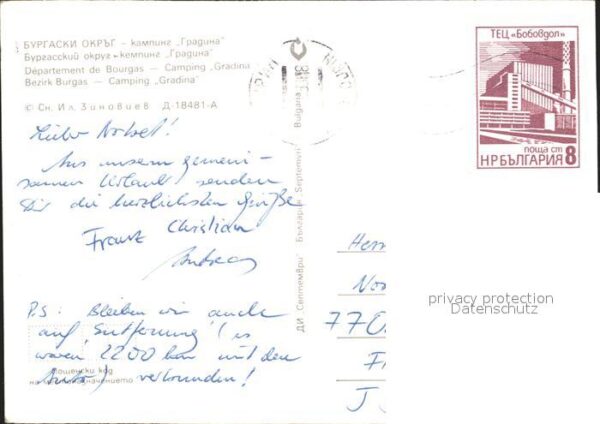 БУРГАСКИ ОКРЪГ – кампинг „Градина"
Бургасский округ – кемпинг „Градина"
Département de Bourgas — Camping „Gradina"
Bezirk Burgas — Camping „Gradina"
© Сн. Ил. Зиновиев Д-18481-А
ТЕЦ „Бобовдол"
поща ст
НРБЪЛГАРИЯ 8
Lieber !
Aus unserem gemein-
samen Urlaub senden
Dir die herzlichsten Grüße
Franz Christian
Andreas
P.S: Bleiben wir auch
auf "Entfernung" (es
waren 2200 km mit dem
Auto) verbunden!
Пощенски код
на местоназначението
ДИ „Септември" България Septemvri Bulgaria
Herr
770
J
privacy protection
Datenschutz